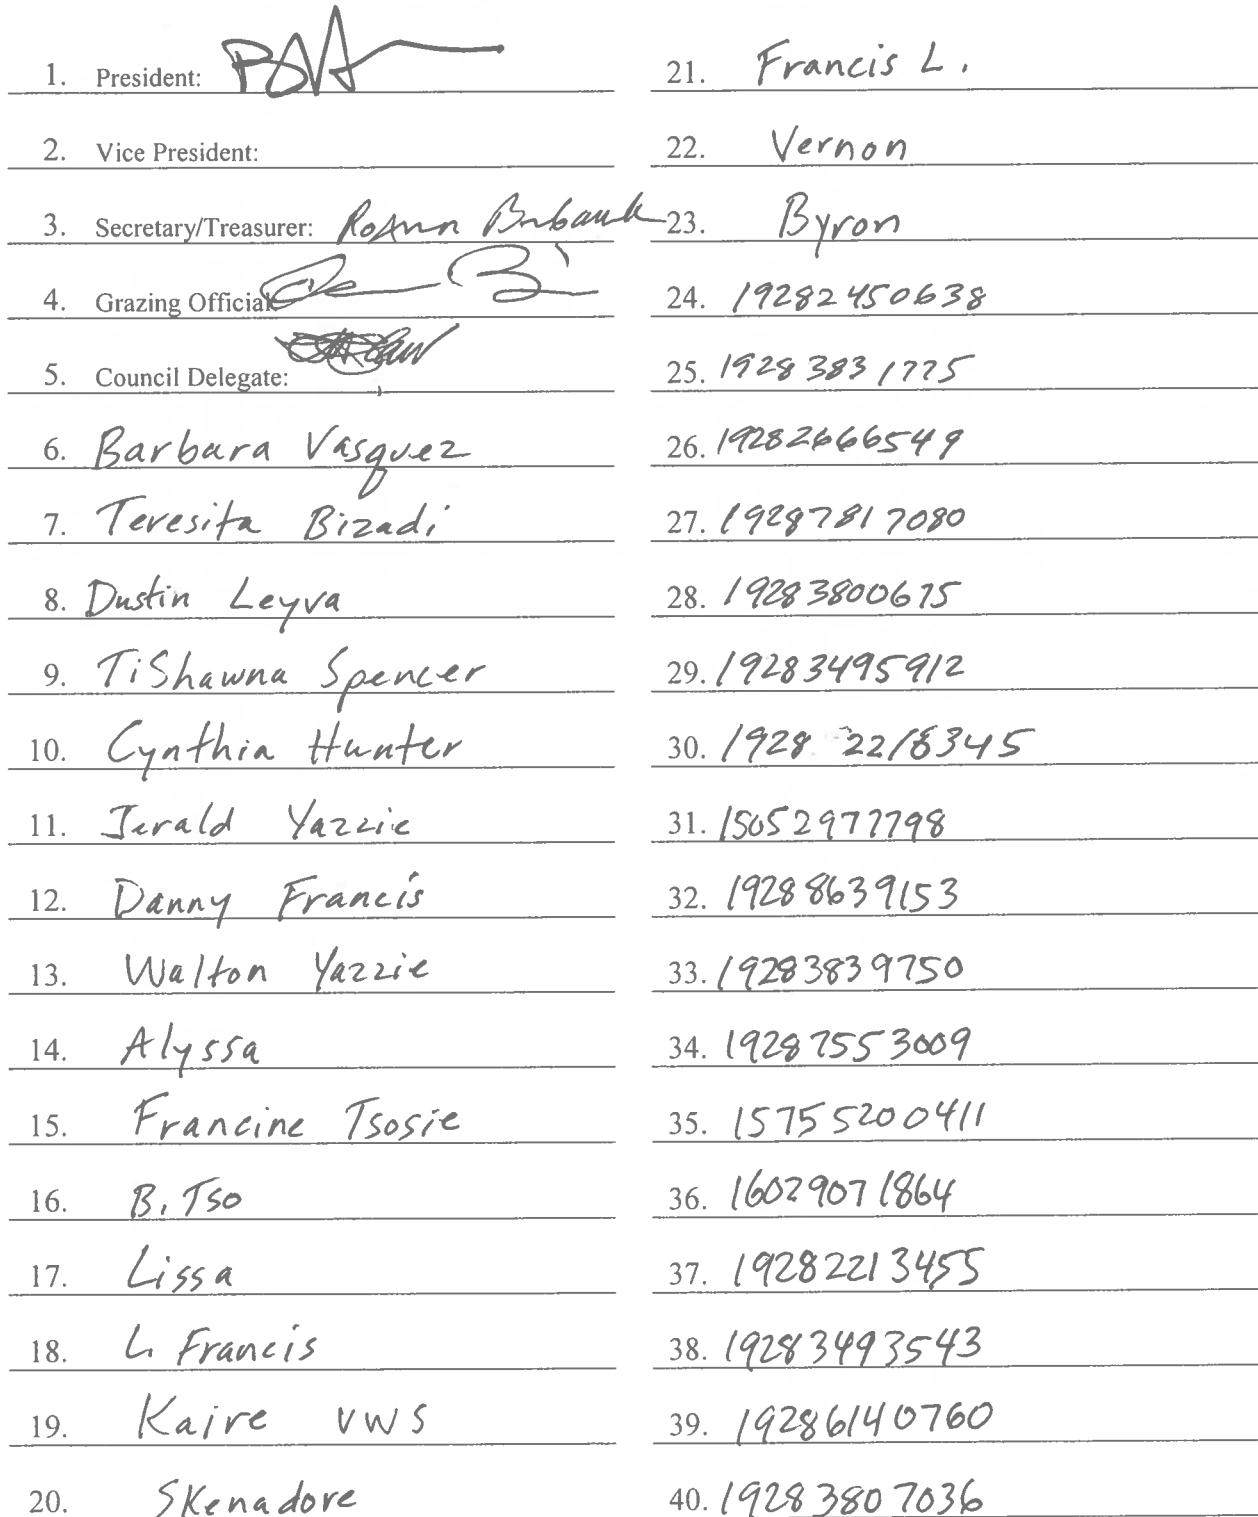 1. President:
2. Vice President:
3. Secretary/Treasurer: RoAnn Burbank
4. Grazing Official:
5. Council Delegate:
6. Barbara Vasquez
7. Teresita Bizadi
8. Dustin Leyva
9. TiShawna Spencer
10. Cynthia Hunter
11. Jerald Yazzie
12. Danny Francis
13. Walton Yazzie
14. Alyssa
15. Francine Tsosie
16. B. Tso
17. Lissa
18. L. Francis
19. Kaire VWS
20. Skenadore
21. Francis L.
22. Vernon
23. Byron
24. 19282450638
25. 19283831775
26. 19282666549
27. 19287817080
28. 19283800675
29. 19283495912
30. 1928 2218345
31. 15052977798
32. 19288639153
33. 19283839750
34. 19287553009
35. 15755200411
36. 16029071864
37. 19282213455
38. 19283493543
39. 19286140760
40. 19283807036